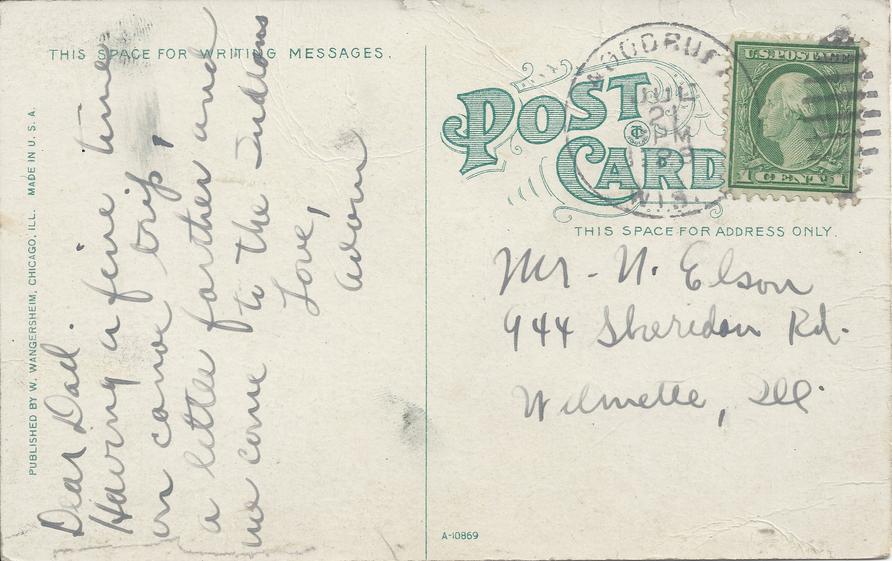 THIS SPACE FOR WRITING MESSAGES.
PUBLISHED BY W. WANGERSHEIM, CHICAGO, ILL. MADE IN U. S. A.
Dear Dad.
Having a fine time
on canoe trip,
a little farther and
we come to the Indians
Love,
POST
CARD
WOODRUFF
JUL
21
PM
WIS.
U.S. POSTAGE
1 CENT 1
THIS SPACE FOR ADDRESS ONLY.
Mr - N. Elson
944 Sheridan Rd.
Wilmette, Ill.
A-10869